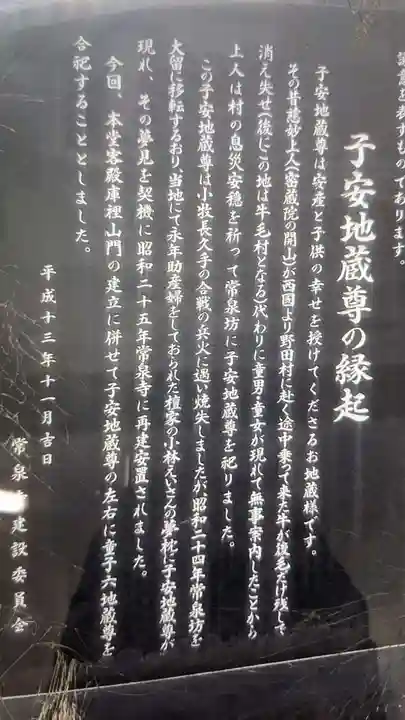 誠意を表すものであります。
子安地蔵尊の縁起
子安地蔵尊は安産と子供の幸せを授けてくださるお地蔵様です。
その昔慈妙上人(密蔵院の開山)が西國より野田村に赴く途中乗って来た牛が後毛だけ残して
消え失せ(後にこの地は牛毛村となる)代わりに童男・童女が現れて無事案内したことから
上人は村の息災安穏を祈って常泉坊に子安地蔵尊を祀りました。
この子安地蔵尊は小牧長久手の合戦の兵火に遇い焼失しましたが、昭和二十四年常泉坊を
大留に移転するおり、当地にて永年助産婦をしておられた檀家の小林ゑいさんの夢枕に子安地蔵尊が
現れ、その夢見を契機に昭和二十五年常泉寺に再建安置されました。
今回、本堂客殿庫裡山門の建立に併せて子安地蔵尊の左右に童子六地蔵尊を
合祀することとしました。
平成十三年十一月吉日
常泉寺建設委員会